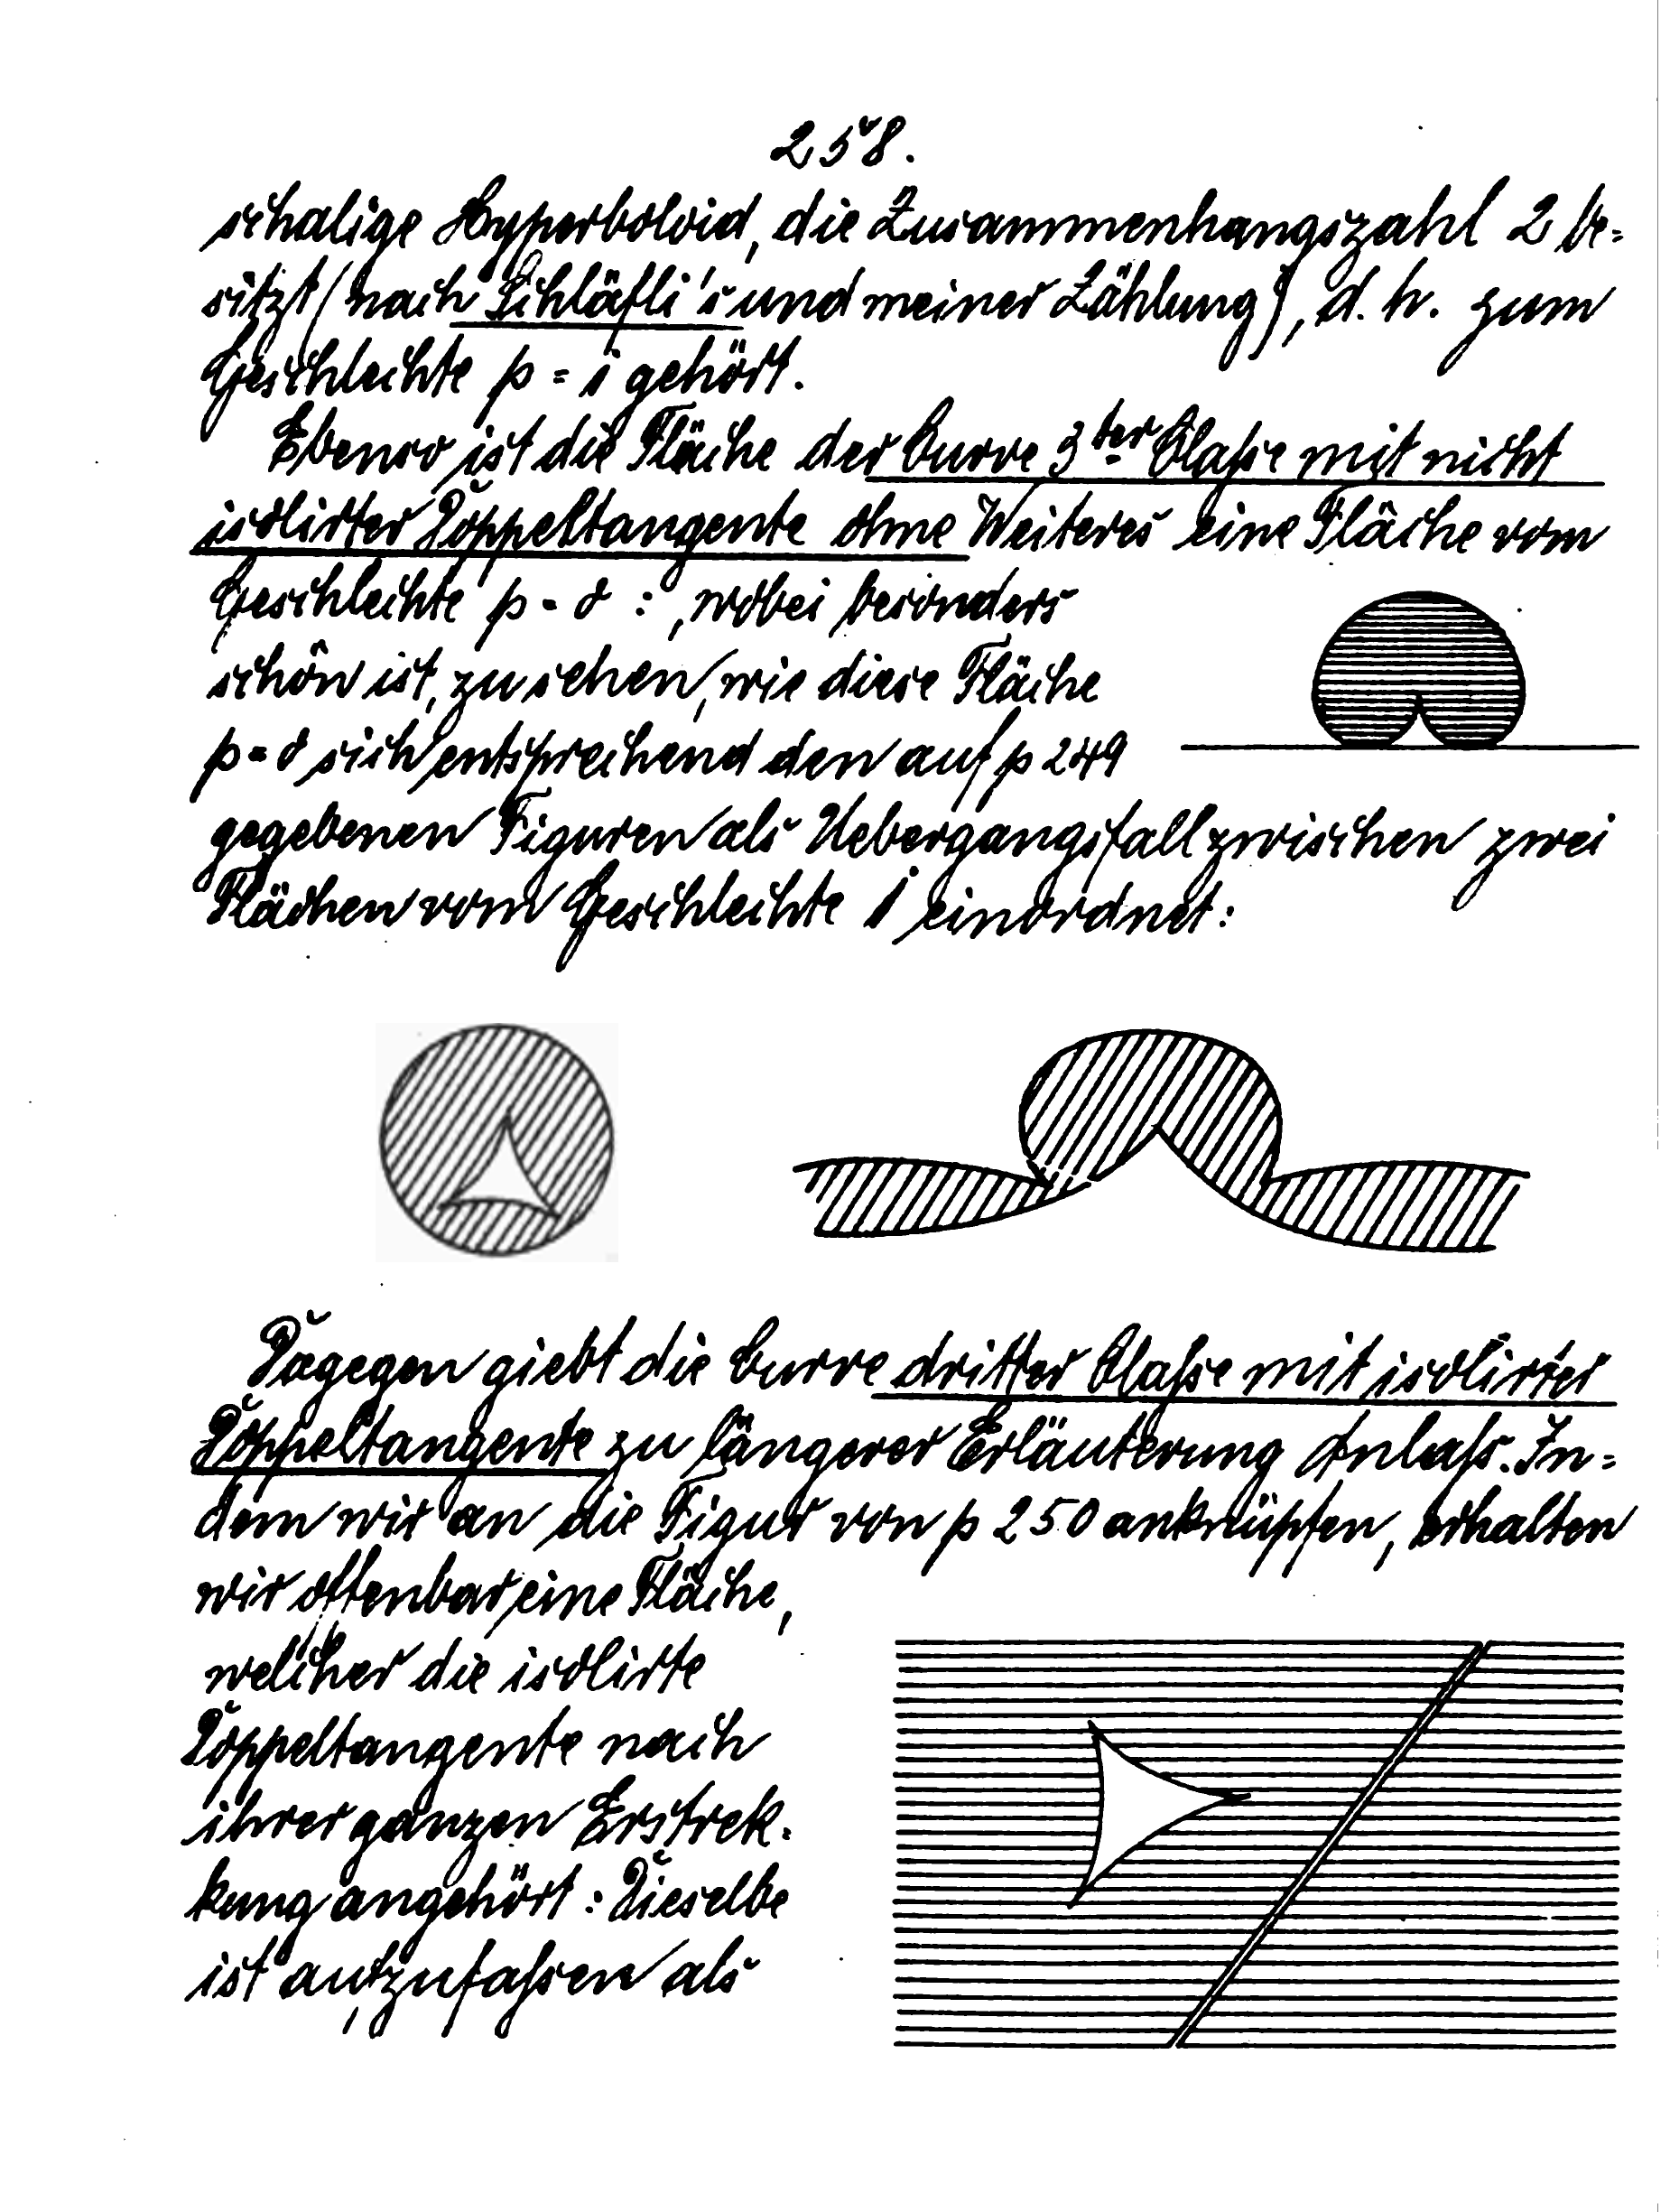 258.
schalige Hyperboloid, die Zusammenhangszahl 2 be=
sitzt (nach Schläfli's und meiner Zählung), d. h. zum
Geschlechte p = 1 gehört.
Ebenso ist die Fläche der Curve 3ter Classe mit nicht
isolirter Doppeltangente ohne Weiteres eine Fläche vom
Geschlechte p = 0 :, wobei besonders
schön ist, zu sehen, wie diese Fläche
p = 0 sich entsprechend den auf p 249
gegebenen Figuren als Uebergangsfall zwischen zwei
Flächen vom Geschlechte 1 einordnet:
Dagegen giebt die Curve dritter Classe mit isolirter
Doppeltangente zu längerer Erläuterung Anlass. In=
dem wir an die Figur von p 250 anknüpfen, erhalten
wir offenbar eine Fläche,
welcher die isolirte
Doppeltangente nach
ihrer ganzen Erstrek-
kung angehört: Dieselbe
ist aufzufassen als